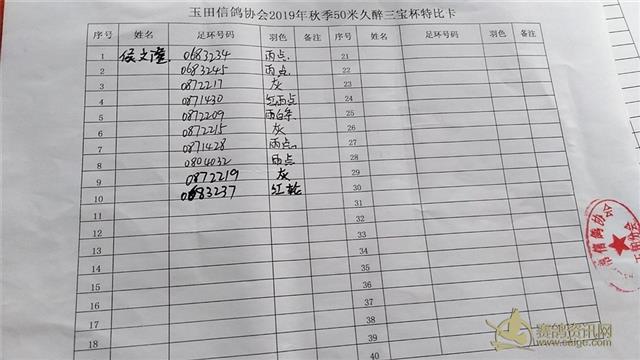 玉田信鸽协会2019年秋季50米久醉三宝杯特比卡
序号 姓名 足环号码 羽色 备注 序号 姓名 足环号码 羽色 备注
1 侯文隆 0683234 雨点 21
2 0683245 雨点 22
3 0872217 灰 23
4 0871430 红雨点 24
5 0872209 雨白条 25
6 0872215 灰 26
7 0871428 雨点 27
8 0804032 雨点 28
9 0872219 灰 29
10 0683237 红轮 30
11
12
13
14
15
16
17
18
40
信鸽协会
赛鸽资讯网
www.saige.com